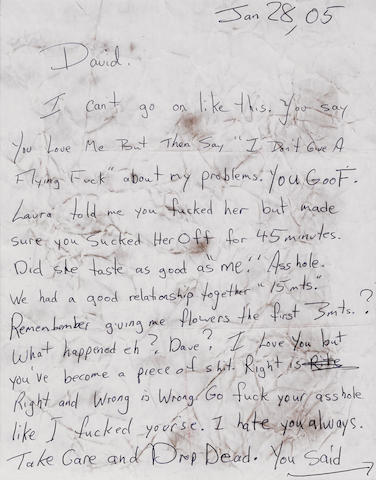 Jan 28, 05
David.
I can't go on like this. You say
You Love Me But Then Say "I Don't Give A
Flying Fuck" about my problems. You GooF.
Laura told me you fucked her but made
sure you Sucked Her Off for 45 minutes.
Did she taste as good as "me." Asshole.
We had a good relationship together "15 mts."
Remember giving me flowers the first 3 mts. ?
What happened eh? Dave? I Love You but
you've become a piece of shit. Right is
Right and Wrong is Wrong. Go fuck your asshole
like I fucked yourse. I hate you always.
Take Care and Drop Dead. You Said